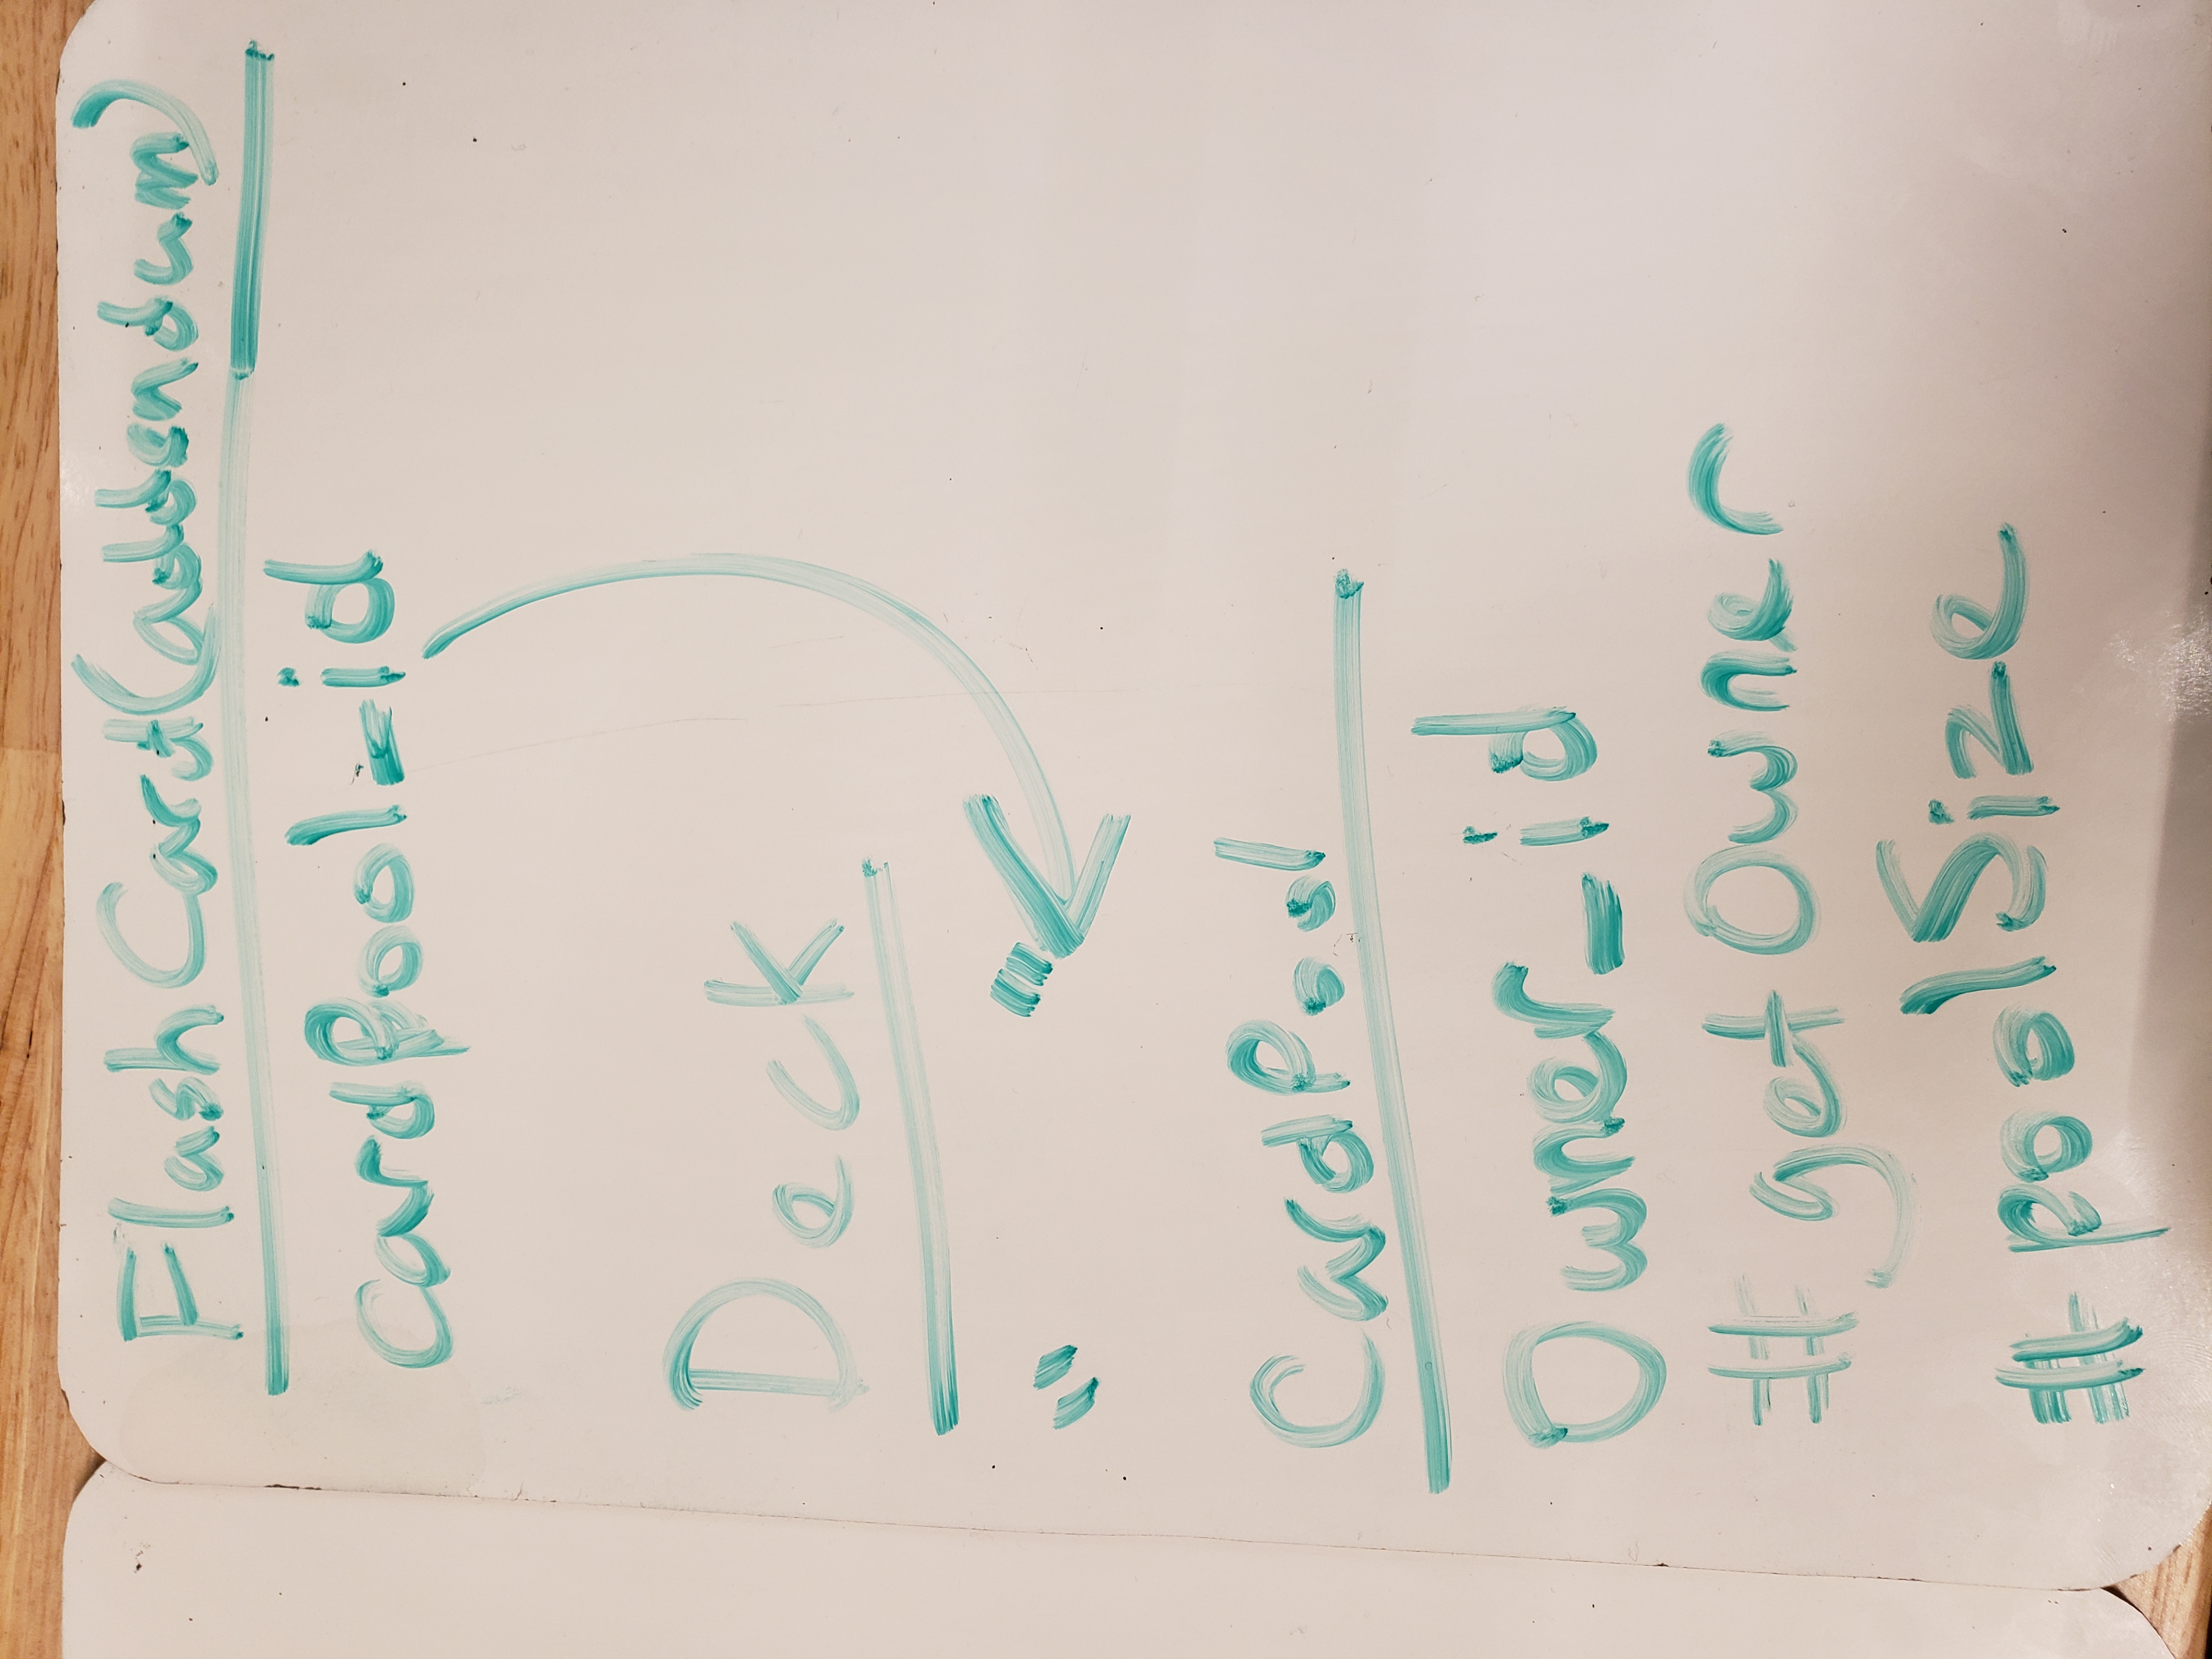 FlashCard(addendum)
cardPool_id
Deck
" "
CardPool
Owner_id
# getOwner
# poolSize